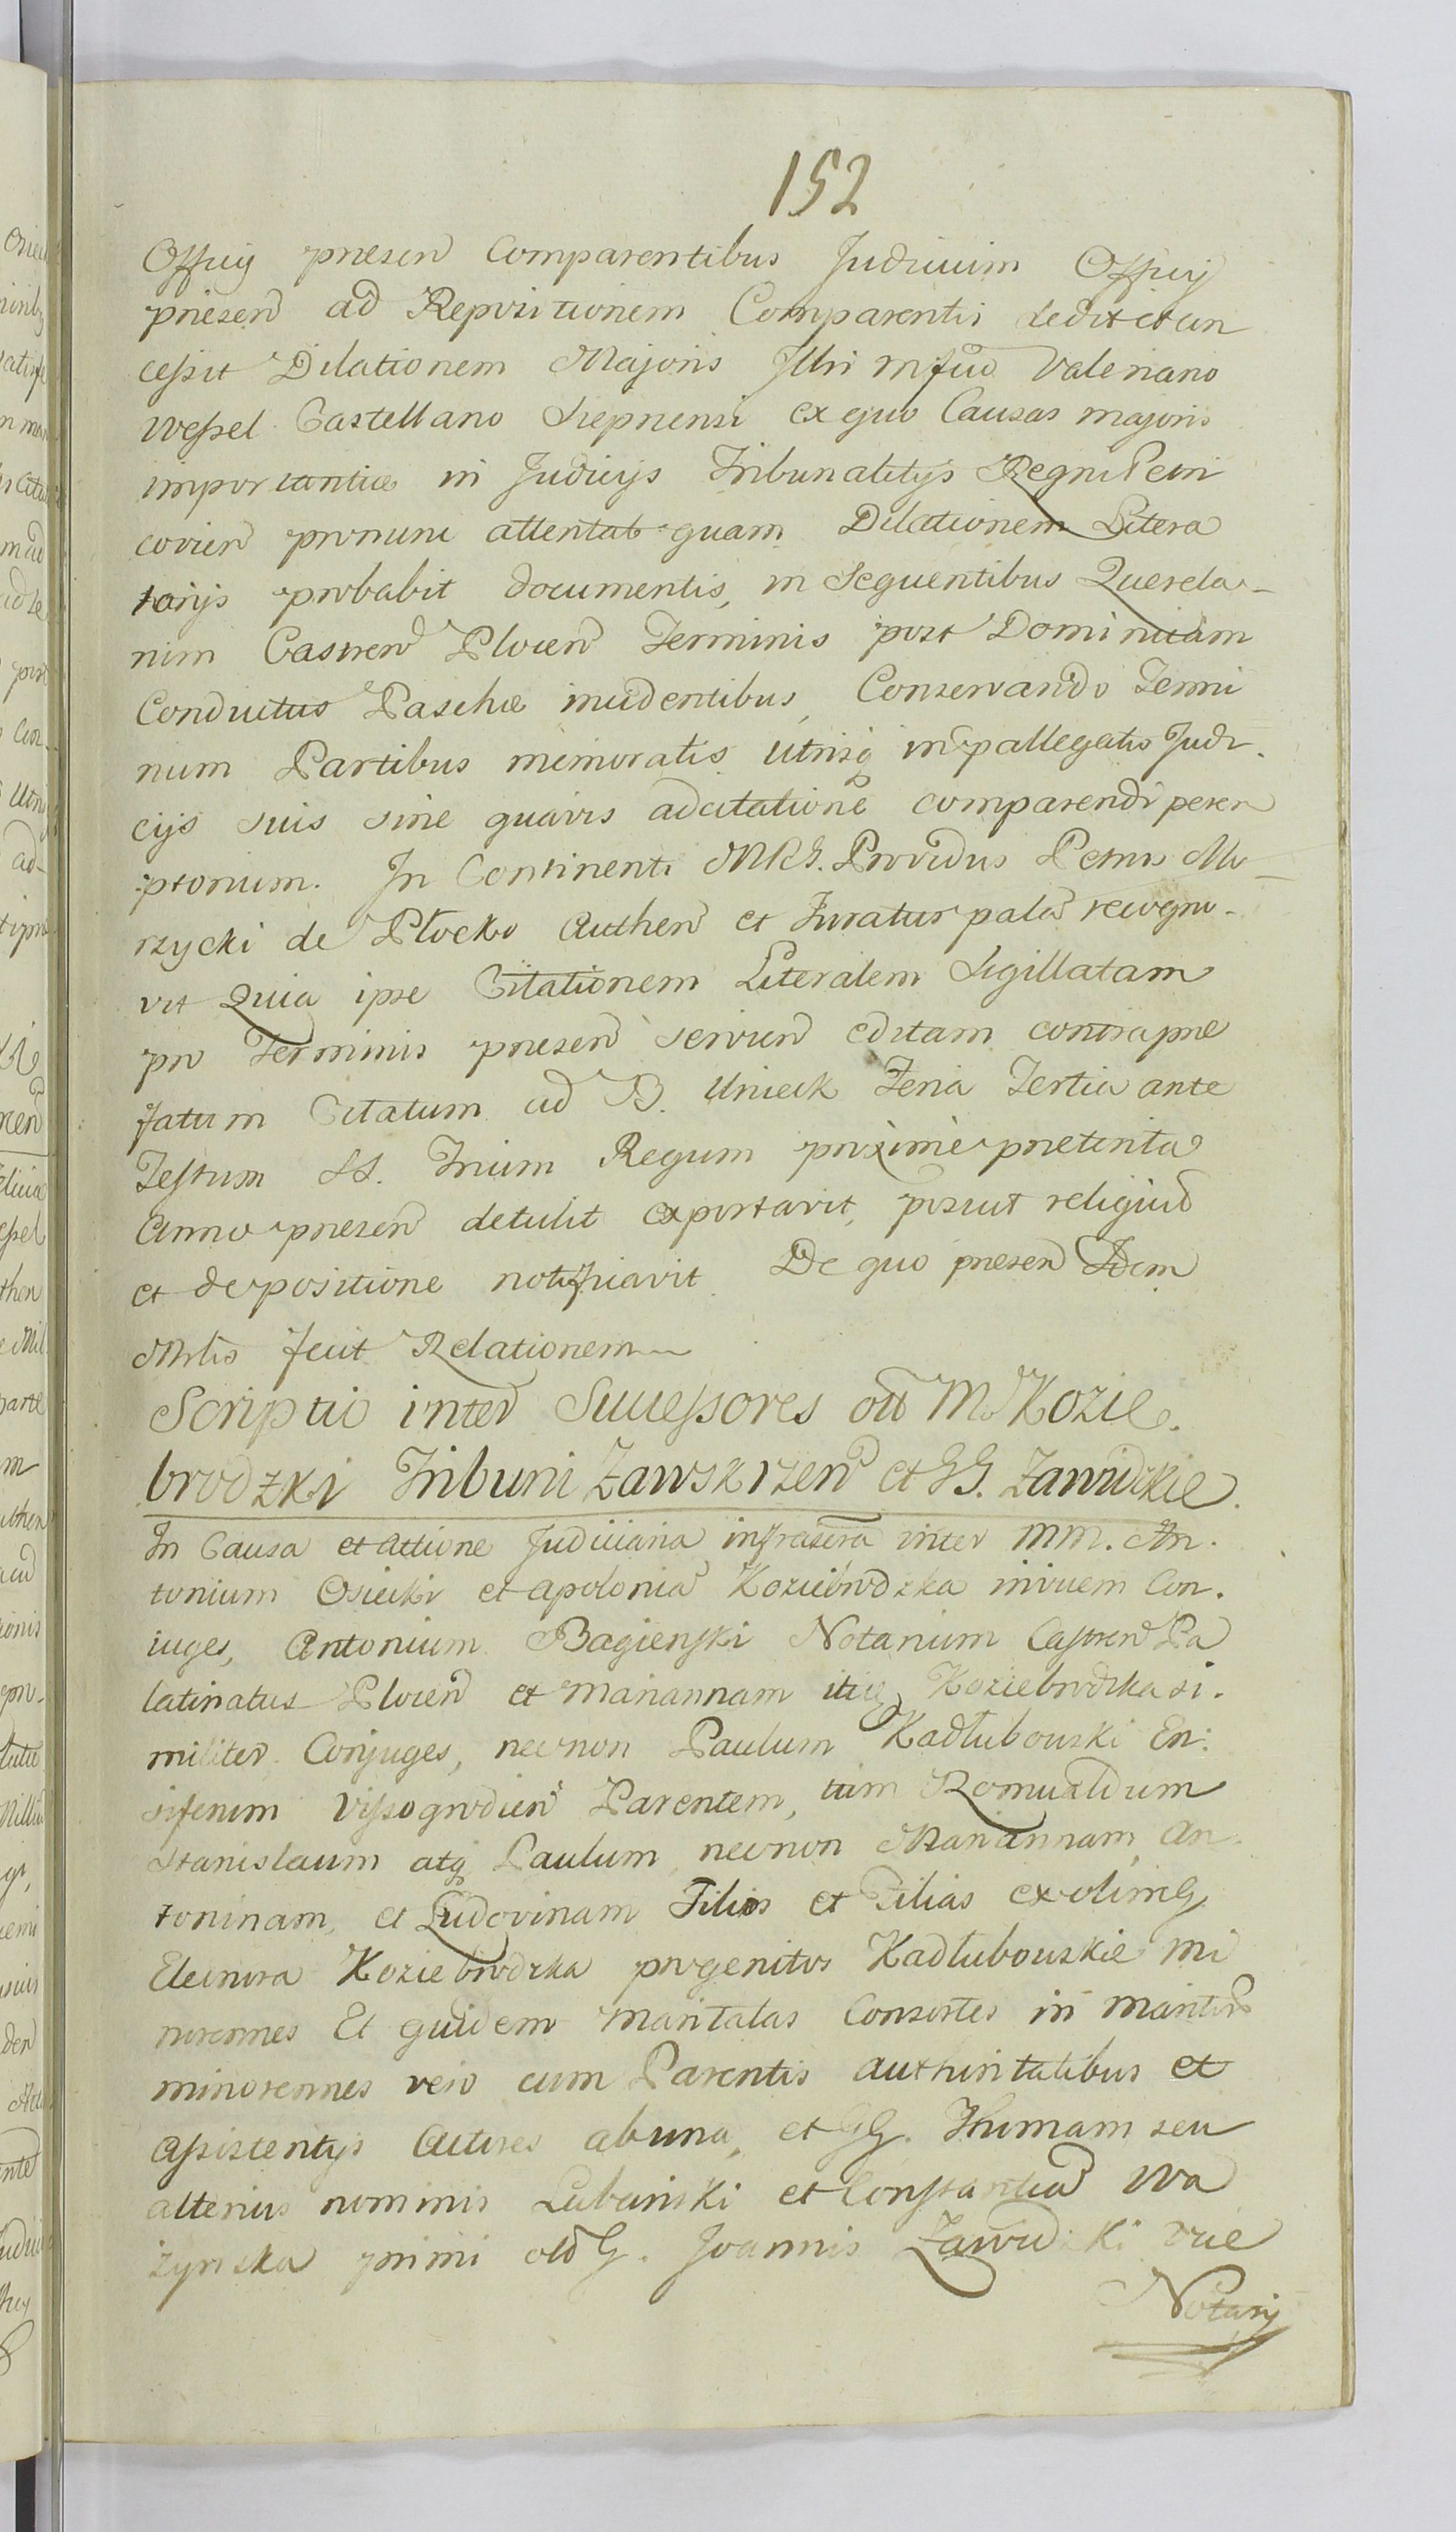 152
Officij presen Comparentibus Judicium Officij
presen ad Repositionem Comparentis dedit et con
cessit Dilationem Majoris Illri mfco Valeriano
Wessel Castellano Siepnensi ex quo Causas majoris
importantiæ in Judicijs Tribunalitijs Regni Petri
covien pronunc attentat quam Dilationem Litera
torijs probabit documentis, in Sequentibus Querela-
rum Castren Plocen Terminis post Dominicam
Conductus Paschæ incidentibus, Conservando Termi
num Partibus memoratis utrisq in pallegatis Judi-
cijs suis sine quavis adcitatione comparendi perem
ptorium. In Continenti MRG. Providus Petrus Mo-
rzycki de Płocko Authen et Juratus palam recogno-
vit Quia ipse Citationem Literalem Sigillatam
pro Terminis presen servien editam contra præ
fatum Citatum ad B. Unieck Feria Tertia ante
Festum SS. Trium Regum proxime preterita
Anno presen detulit exportavit, posuit religiuo
et depositione notificavit. De quo presen Idem
Mrlis fecit Relationem
Scriptio inter Successores oli M. Kozie-
brodzki Tribuni Zawskrzen et GG. Zawidzkie.
In Causa et Actione Judiciaria infrascra inter MM. An-
tonium Osiecki et Apolonia Koziebrodzka invicem Con-
iuges, Antonium Bagienski Notarium Castren Pa
latinatus Plocen et Mariannam itidq Koziebrodzka si-
militer Conjuges, necnon Paulum Kadłubowski En-
siferum Vissogrodien Parentem, tum Romualdum
Stanislaum atq Paulum necnon Mariannam, An-
toninam, et Ludovinam Filios et Filias ex olim G
Eleonora Koziebrodzka progenitos Kadłubowskie mi
norennes Et quidem Maritatas Consortes in Maritor
minorennes vero cum Parentis authoritatibus et
assistentijs Actores ab una, et GG. Thomam seu
alterius nominis Lubanski et Constantia Wa
żynska primi olo G. Joannis Zawidzki vice
Notarij